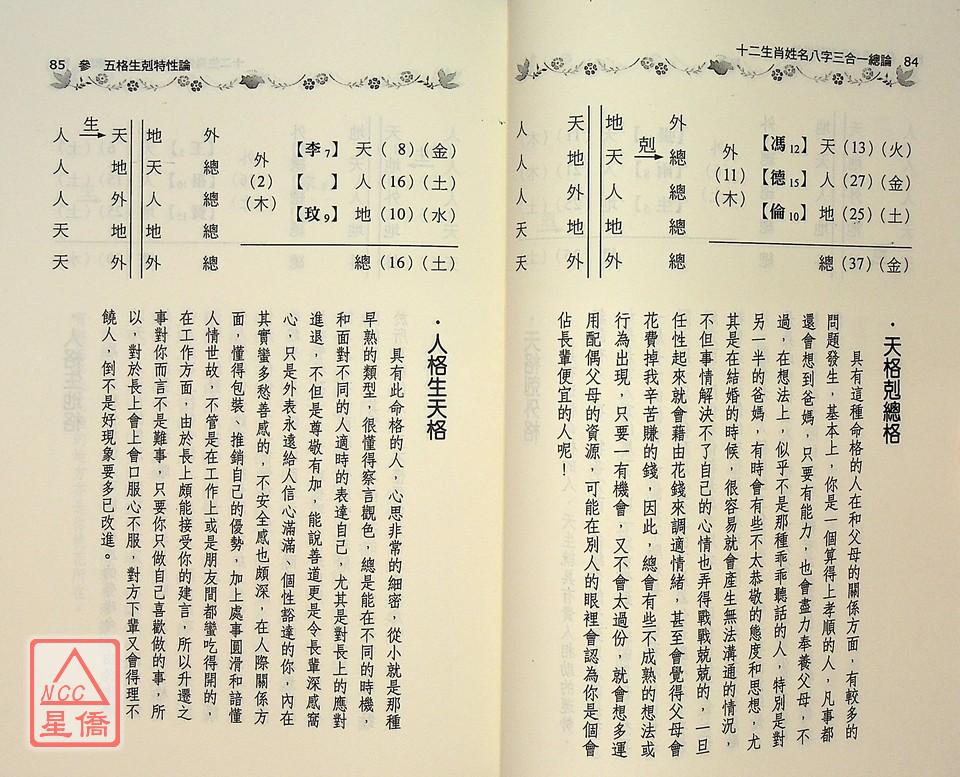 十二生肖姓名八字三合一總論 84
【馮12】 天 (13) (火)
【德15】 人 (27) (金)
【倫10】 地 (25) (土)
外 (11) (木)
總 (37) (金)
外 總 總 總 總
剋
地 天 人 天 地
天 地 外 地 外
人 人 人 天 天
・天格剋總格
具有這種命格的人在和父母的關係方面，有較多的
問題發生，基本上，你是一個算得上孝順的人，凡事都
還會想到爸媽，只要有能力，也會盡力奉養父母，不
過，在想法上，似乎不是那種乖乖聽話的人，特別是對
另一半的爸媽，有時會有些不太恭敬的態度和思想，尤
其是在結婚的時候，很容易就會產生無法溝通的情況，
不但事情解決不了自己的心情也弄得戰戰兢兢的，一旦
任性起來就會藉由花錢來調適情緒，甚至會覺得父母會
花費掉我辛苦賺的錢，因此，總會有些不成熟的想法或
行為出現，只要一有機會，又不會太過份，就會想多運
用配偶父母的資源，可能在別人的眼裡會認為你是個會
佔長輩便宜的人呢！
85 參 五格生剋特性論
【李7】 天 (8) (金)
【 】 人 (16) (土)
【玟9】 地 (10) (水)
外 (2) (木)
總 (16) (土)
外 總 總 總 總
地 天 人 地 外
天 地 外 地 外
生
人 人 人 天 天
・人格生天格
具有此命格的人，心思非常的細密，從小就是那種
早熟的類型，很懂得察言觀色，總是能在不同的時機，
和面對不同的人適時的表達自己，尤其是對長上的應對
進退，不但是尊敬有加，能說善道更是令長輩深感窩
心，只是外表永遠給人信心滿滿、個性豁達的你，內在
其實蠻多愁善感的，不安全感也頗深，在人際關係方
面，懂得包裝、推銷自己的優勢，加上處事圓滑和諳懂
人情世故，不管是在工作上或是朋友間都蠻吃得開的，
在工作方面，由於長上頗能接受你的建言，所以升遷之
事對你而言不是難事，只要你只做自己喜歡做的事，所
以，對於長上會上會口服心不服，對方下輩又會得理不
饒人，倒不是好現象要多已改進。
NCC
星僑